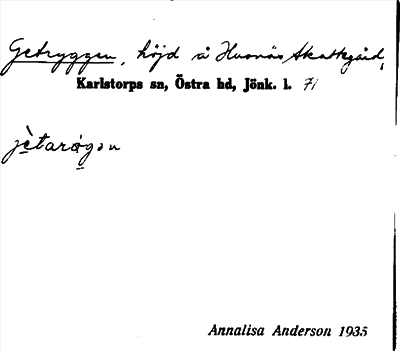 Getryggen, höjd å Hvonäs Skattegård,
Karlstorps sn, Östra hd, Jönk. l. 71
jètarøgən
Annalisa Anderson 1935